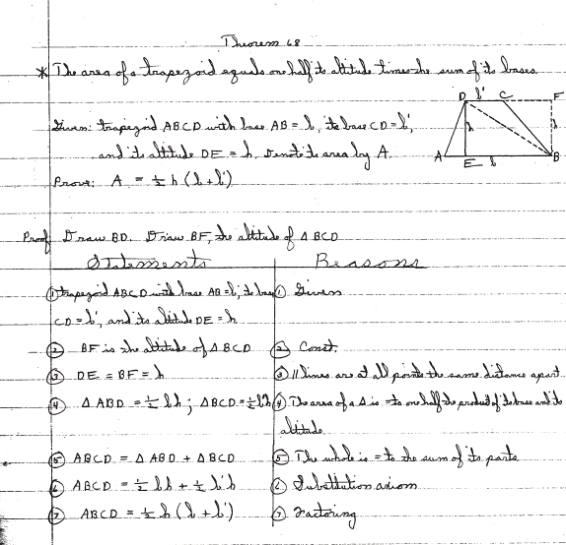 Theorem 68
* The area of a trapezoid equals one half its altitude times the sum of its bases.
Given: trapezoid ABCD with base AB = b, its base CD = b',
and its altitude DE = h. Denote its area by A.
Prove: A = ½ h (b + b')
D b' C F
h h
A E b B
Proof Draw BD. Draw BF, the altitude of Δ BCD
Statements Reasons
① trapezoid ABCD with base AB = b, its base ① Given
CD = b', and its altitude DE = h
② BF is the altitude of Δ BCD ② Const.
③ DE = BF = h ③ || lines are at all points the same distance apart.
④ Δ ABD = ½ bh ; Δ BCD = ½ b'h ④ The area of a Δ is = to one half the product of its base and its
altitude.
⑤ ABCD = Δ ABD + Δ BCD ⑤ The whole is = to the sum of its parts
⑥ ABCD = ½ bh + ½ b'h ⑥ Substitution axiom
⑦ ABCD = ½ h (b + b') ⑦ Factoring